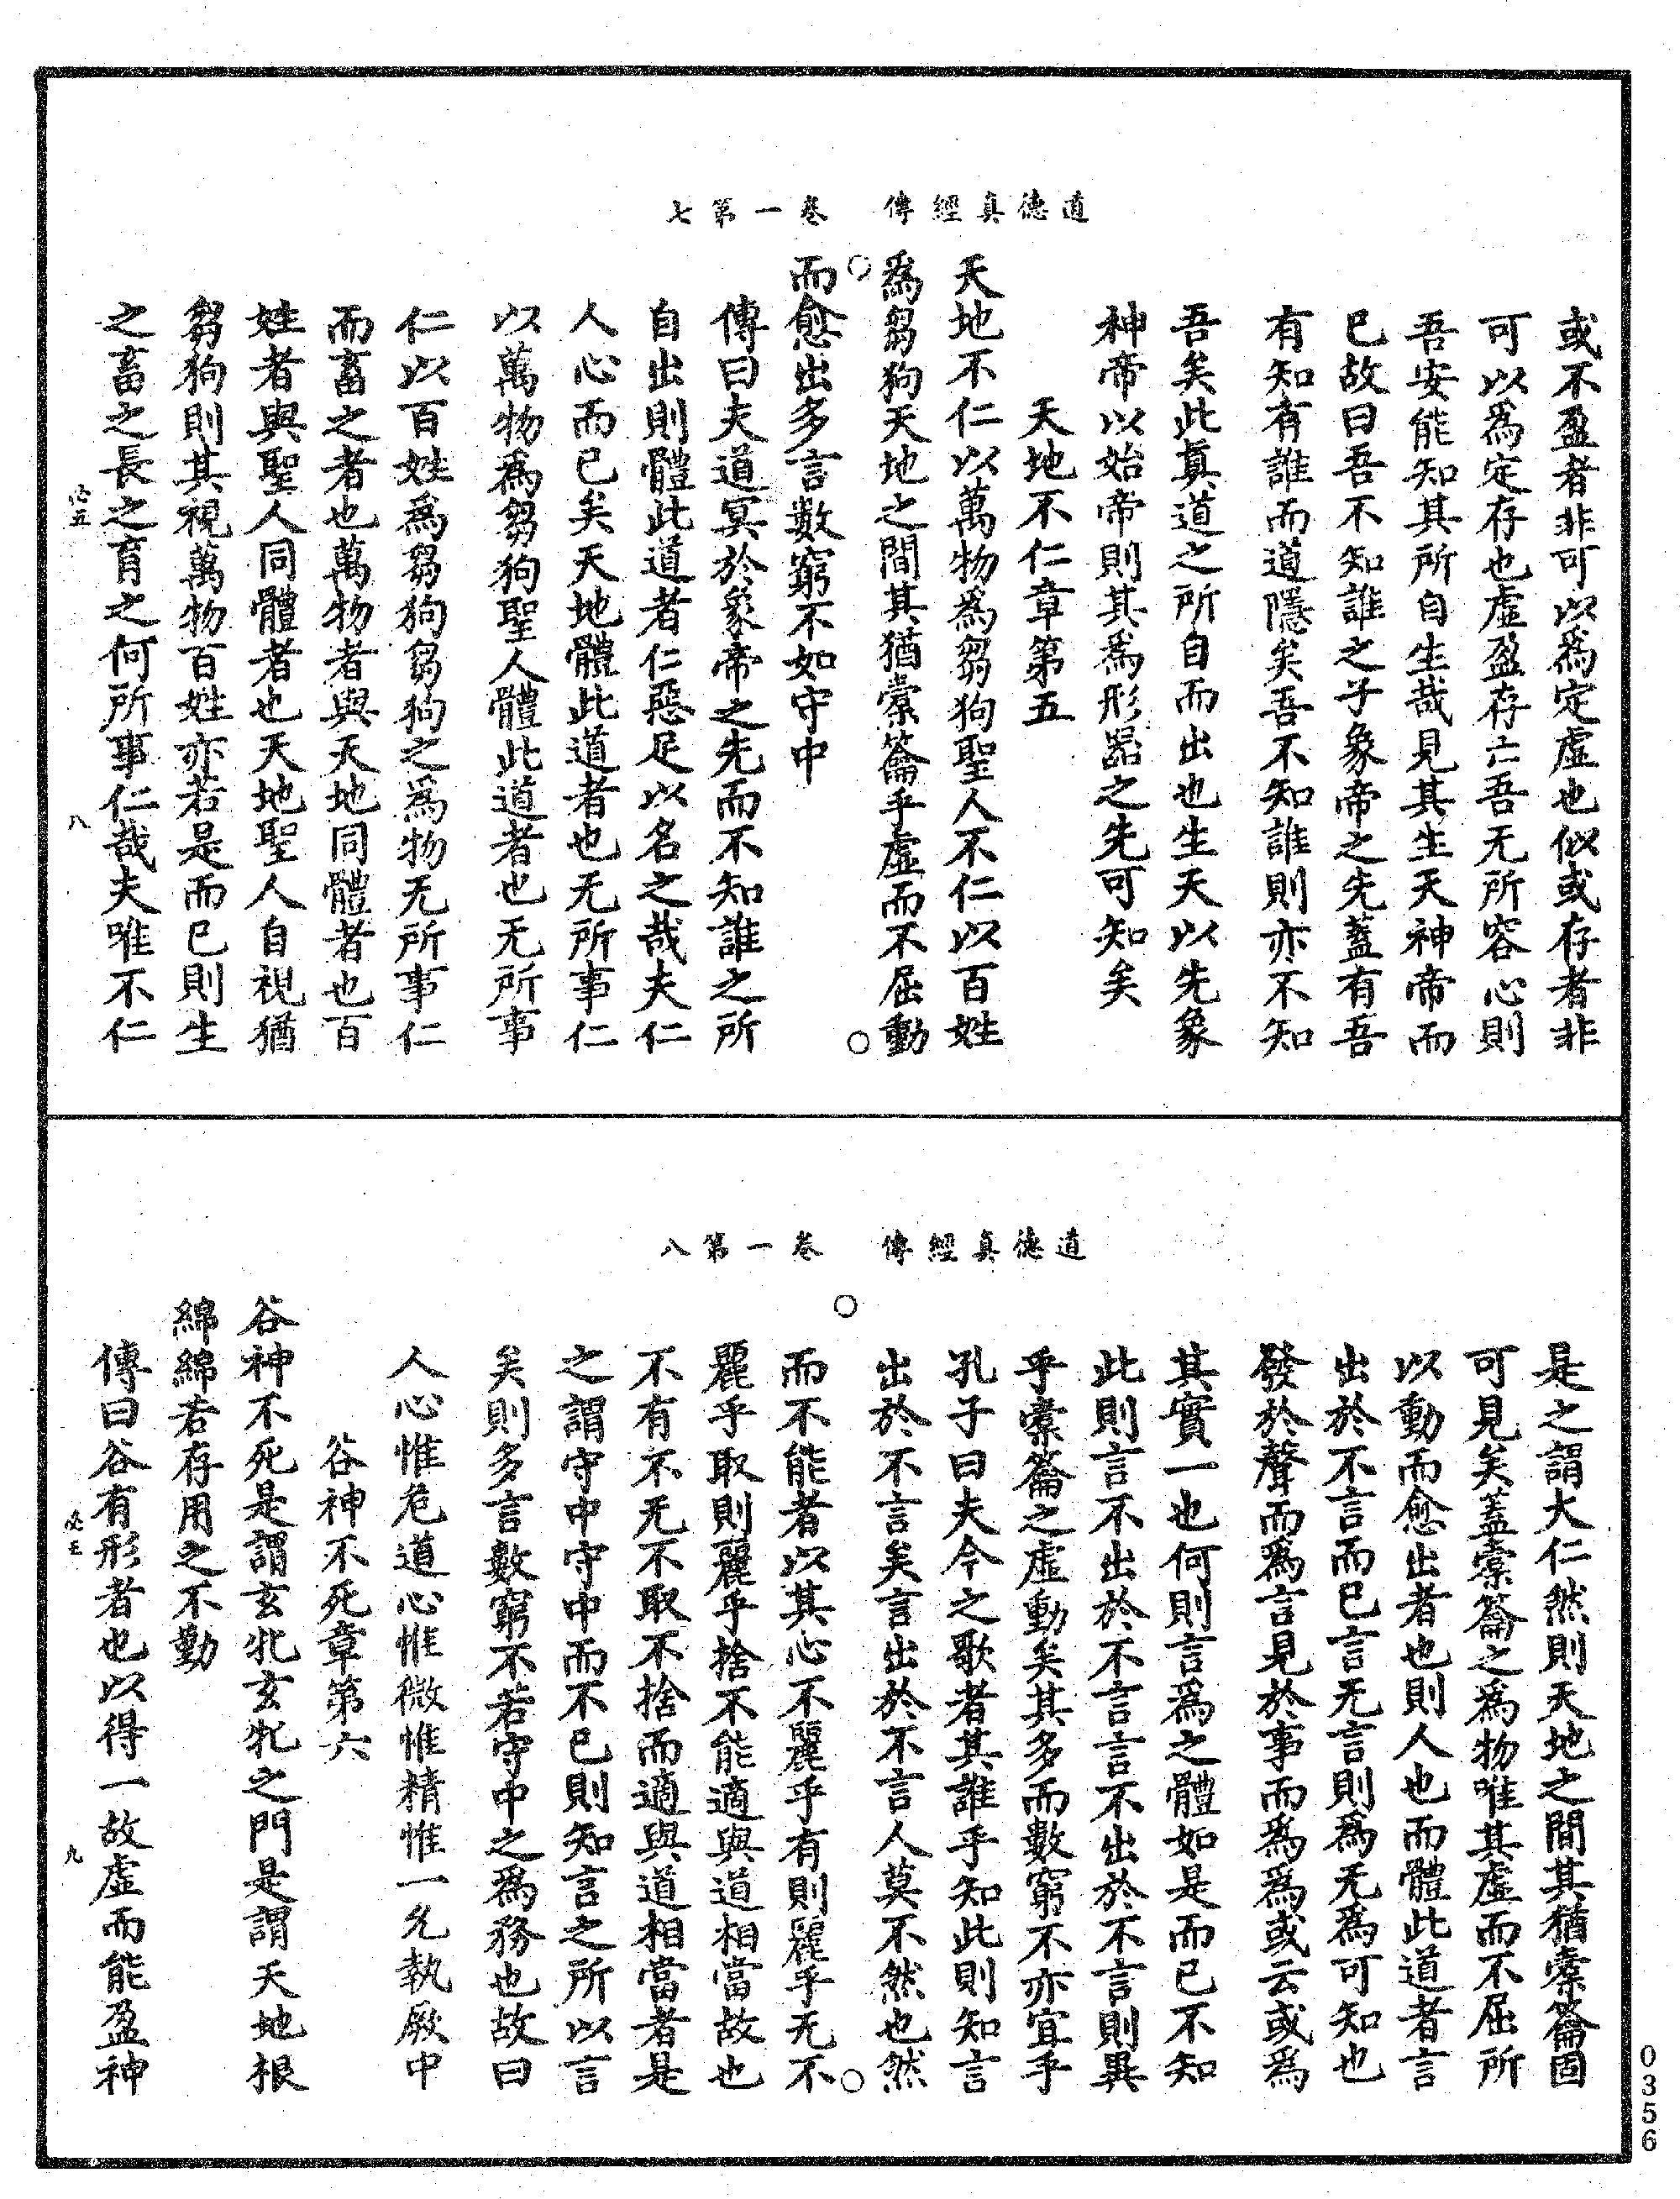 道德真經傳　卷一第七
或不盈者非可以爲定虛也似或存者非
可以爲定存也虛盈存亡吾无所容心則
吾安能知其所自生哉見其生天神帝而
已故曰吾不知誰之子象帝之先蓋有吾
有知有誰而道隱矣吾不知誰則亦不知
吾矣此真道之所自而出也生天以先象
神帝以始帝則其爲形器之先可知矣
天地不仁章第五
天地不仁以萬物爲芻狗聖人不仁以百姓
爲芻狗天地之間其猶橐籥乎虛而不屈動
而愈出多言數窮不如守中
傳曰夫道冥於象帝之先而不知誰之所
自出則體此道者仁惡足以名之哉夫仁
人心而已矣天地體此道者也无所事仁
以萬物爲芻狗聖人體此道者也无所事
仁以百姓爲芻狗芻狗之爲物无所事仁
而畜之者也萬物者與天地同體者也百
姓者與聖人同體者也天地聖人自視猶
芻狗則其視萬物百姓亦若是而已則生
之畜之長之育之何所事仁哉夫唯不仁
八
道德真經傳　卷一第八
是之謂大仁然則天地之間其猶橐籥固
可見矣蓋橐籥之爲物唯其虛而不屈所
以動而愈出者也則人也而體此道者言
出於不言而已言无言則爲无爲可知也
發於聲而爲言見於事而爲爲或云或爲
其實一也何則言爲之體如是而已不知
此則言不出於不言言不出於不言則異
乎橐籥之虛動矣其多而數窮不亦宜乎
孔子曰夫今之歌者其誰乎知此則知言
出於不言矣言出於不言人莫不然也然
而不能者以其心不麗乎有則麗乎无不
麗乎取則麗乎捨不能適與道相當故也
不有不无不取不捨而適與道相當者是
之謂守中守中而不已則知言之所以言
矣則多言數窮不若守中之爲務也故曰
人心惟危道心惟微惟精惟一允執厥中
谷神不死章第六
谷神不死是謂玄牝玄牝之門是謂天地根
綿綿若存用之不勤
傳曰谷有形者也以得一故虛而能盈神
九
0356